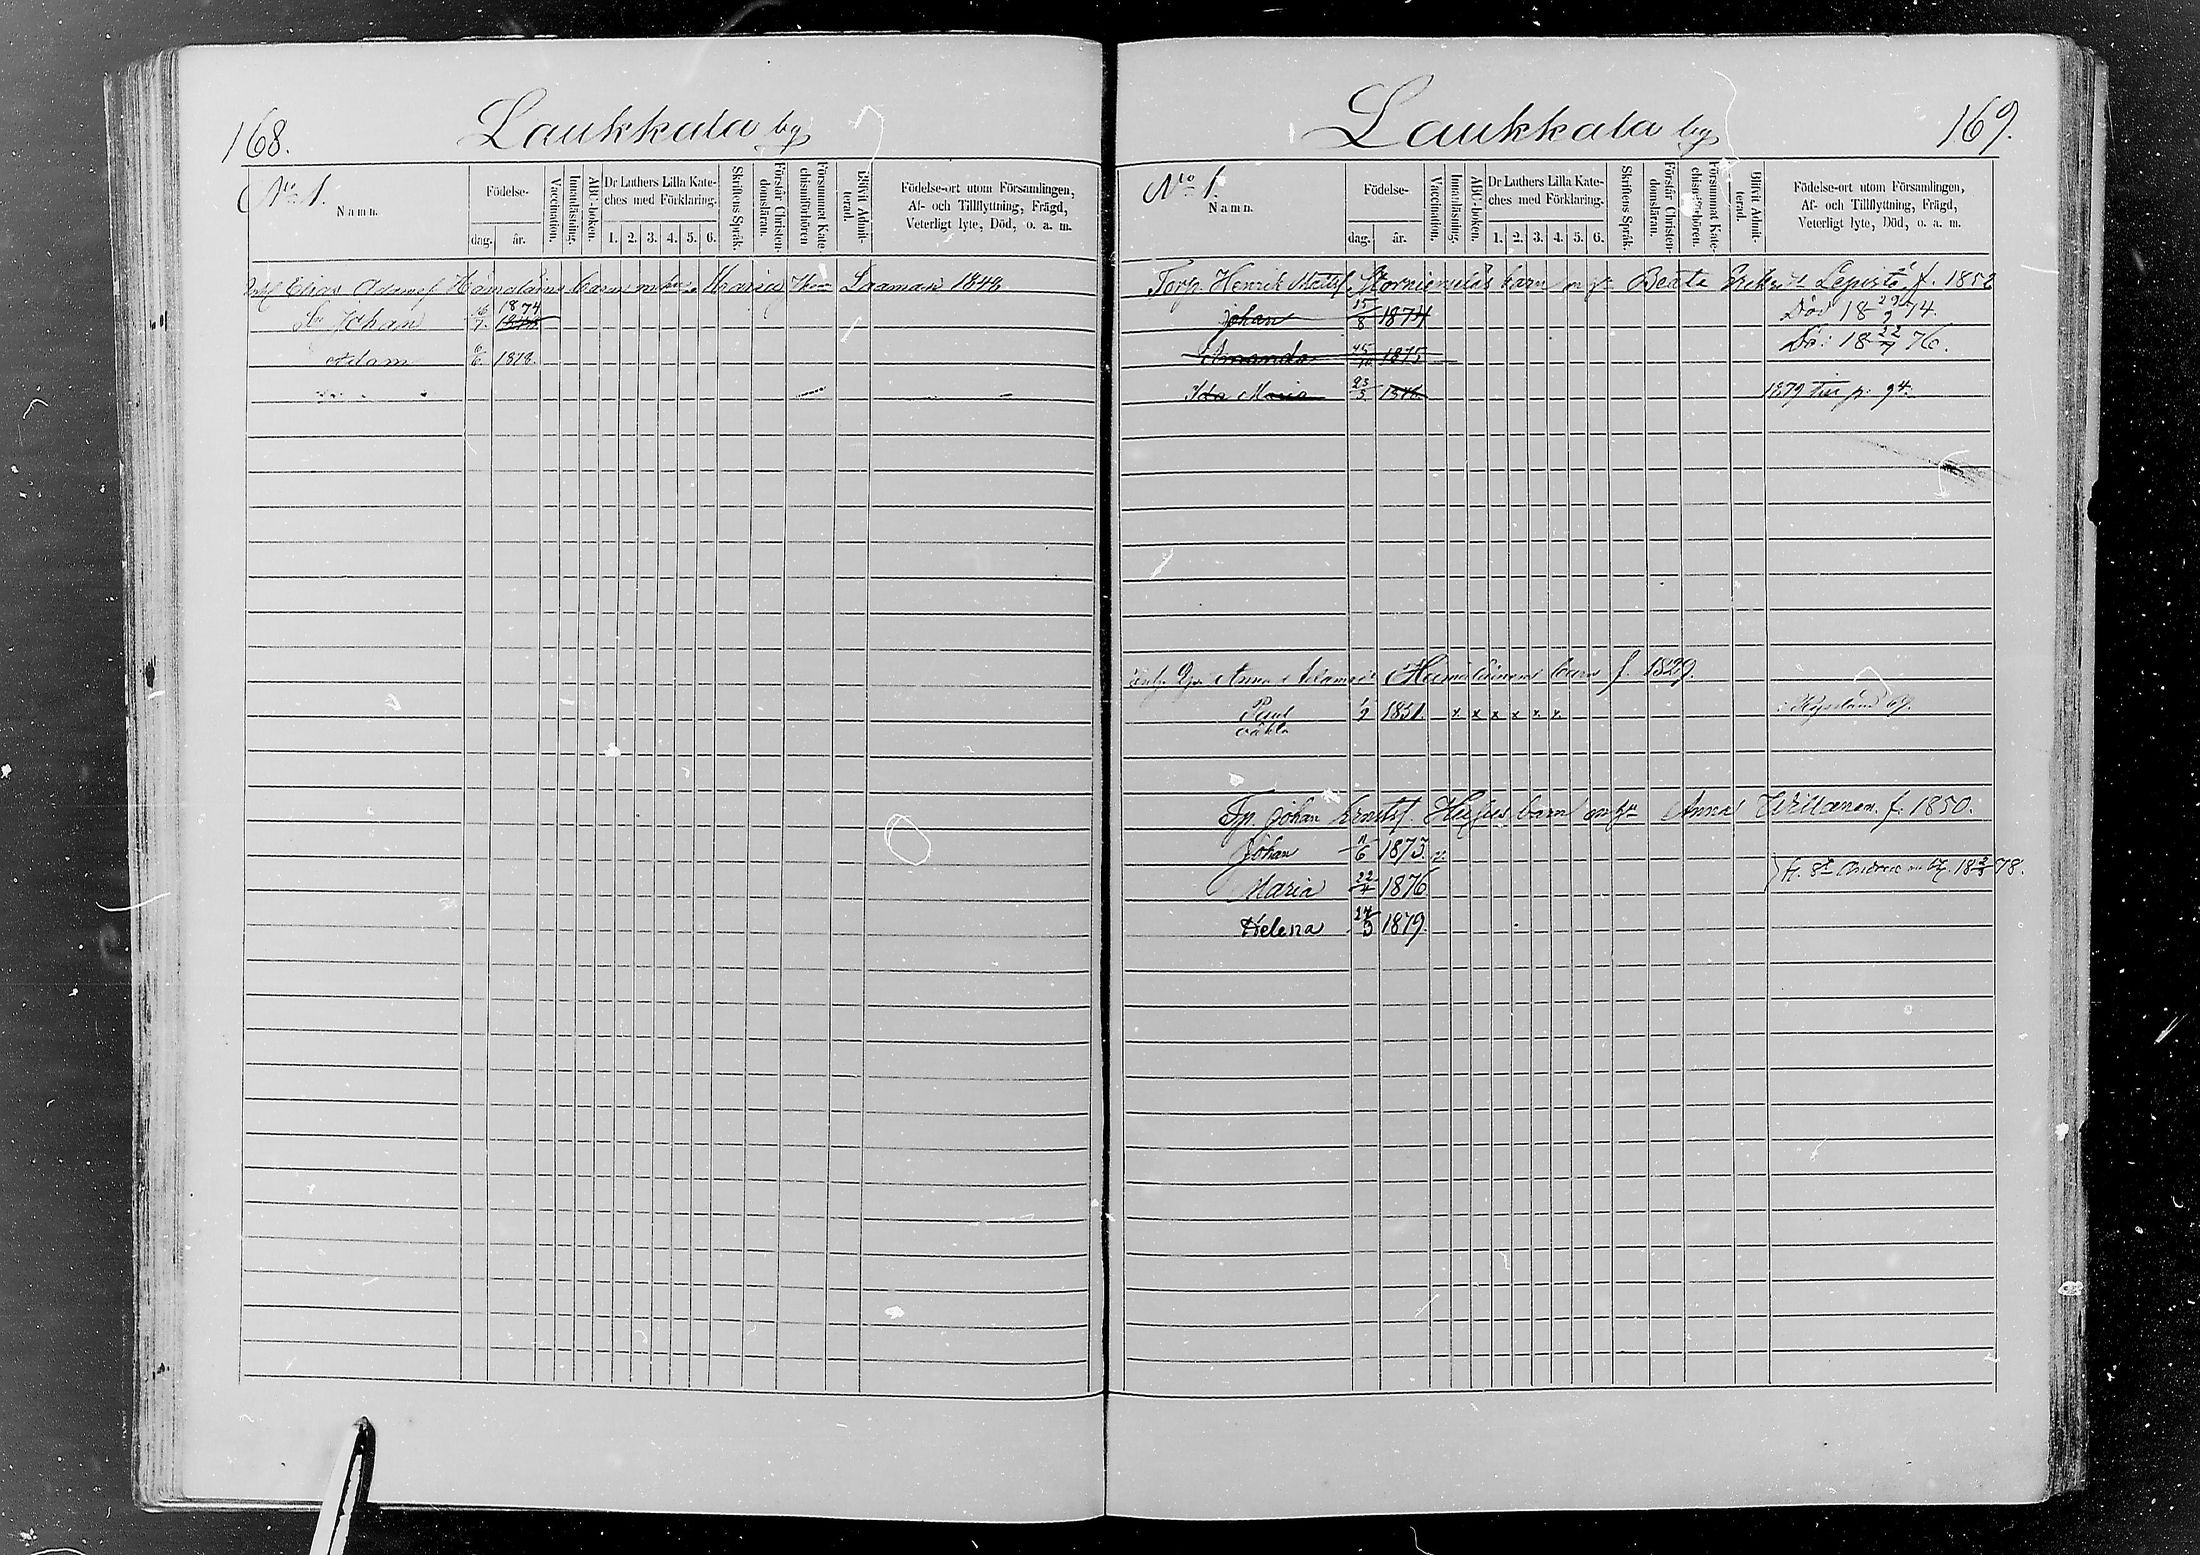 168.
Laukkala by
No 1.
Namn.
Födelse-
dag.
år.
Vaccination.
Innanläsning.
ABC-boken.
Dr Luthers Lilla Kate-
ches med Förklaring.
1. 2. 3. 4. 5. 6.
Skriftens Språk.
Förstår Christen-
domsläran.
Försummat Kate-
chismiförhören
Blifvit Admit-
terad.
Födelse-ort utom Församlingen,
Af- och Tillflyttning, Frägd,
Veterligt lyte, Död, o. a. m.
Elias Adamsf Hämäläins barn Maria Laaman 1848
Johan 16/7. 1874
Adam 6/6. 1878.
Laukkala by
169.
No 1.
Namn.
Födelse-
dag.
år.
Vaccination.
Innanläsning.
ABC-boken.
Dr Luthers Lilla Kate-
ches med Förklaring.
1. 2. 3. 4. 5. 6.
Skriftens Språk.
Förstår Christen-
domsläran.
Försummat Kate-
chismiförhören.
Blifvit Admit-
terad.
Födelse-ort utom Församlingen,
Af- och Tillflyttning, Frägd,
Veterligt lyte, Död, o. a. m.
Torp. Henrik Matts. barn Beata Lepistö f. 1852
Johan 15/8 1874 Död 18 29/9 74.
Amanda 1875 Dö: 18 22/7 76.
Ida Maria 23/3 1878 1879 p. 94.
Anna Adamsd. Hämäläinens barn f. 1829.
Paul 1/9 1851. x x x x x x
Tp. Johan barn Anna f. 1850.
Johan 11/6 1873. v.
Maria 22/4 1876
Helena 24/3 1879.